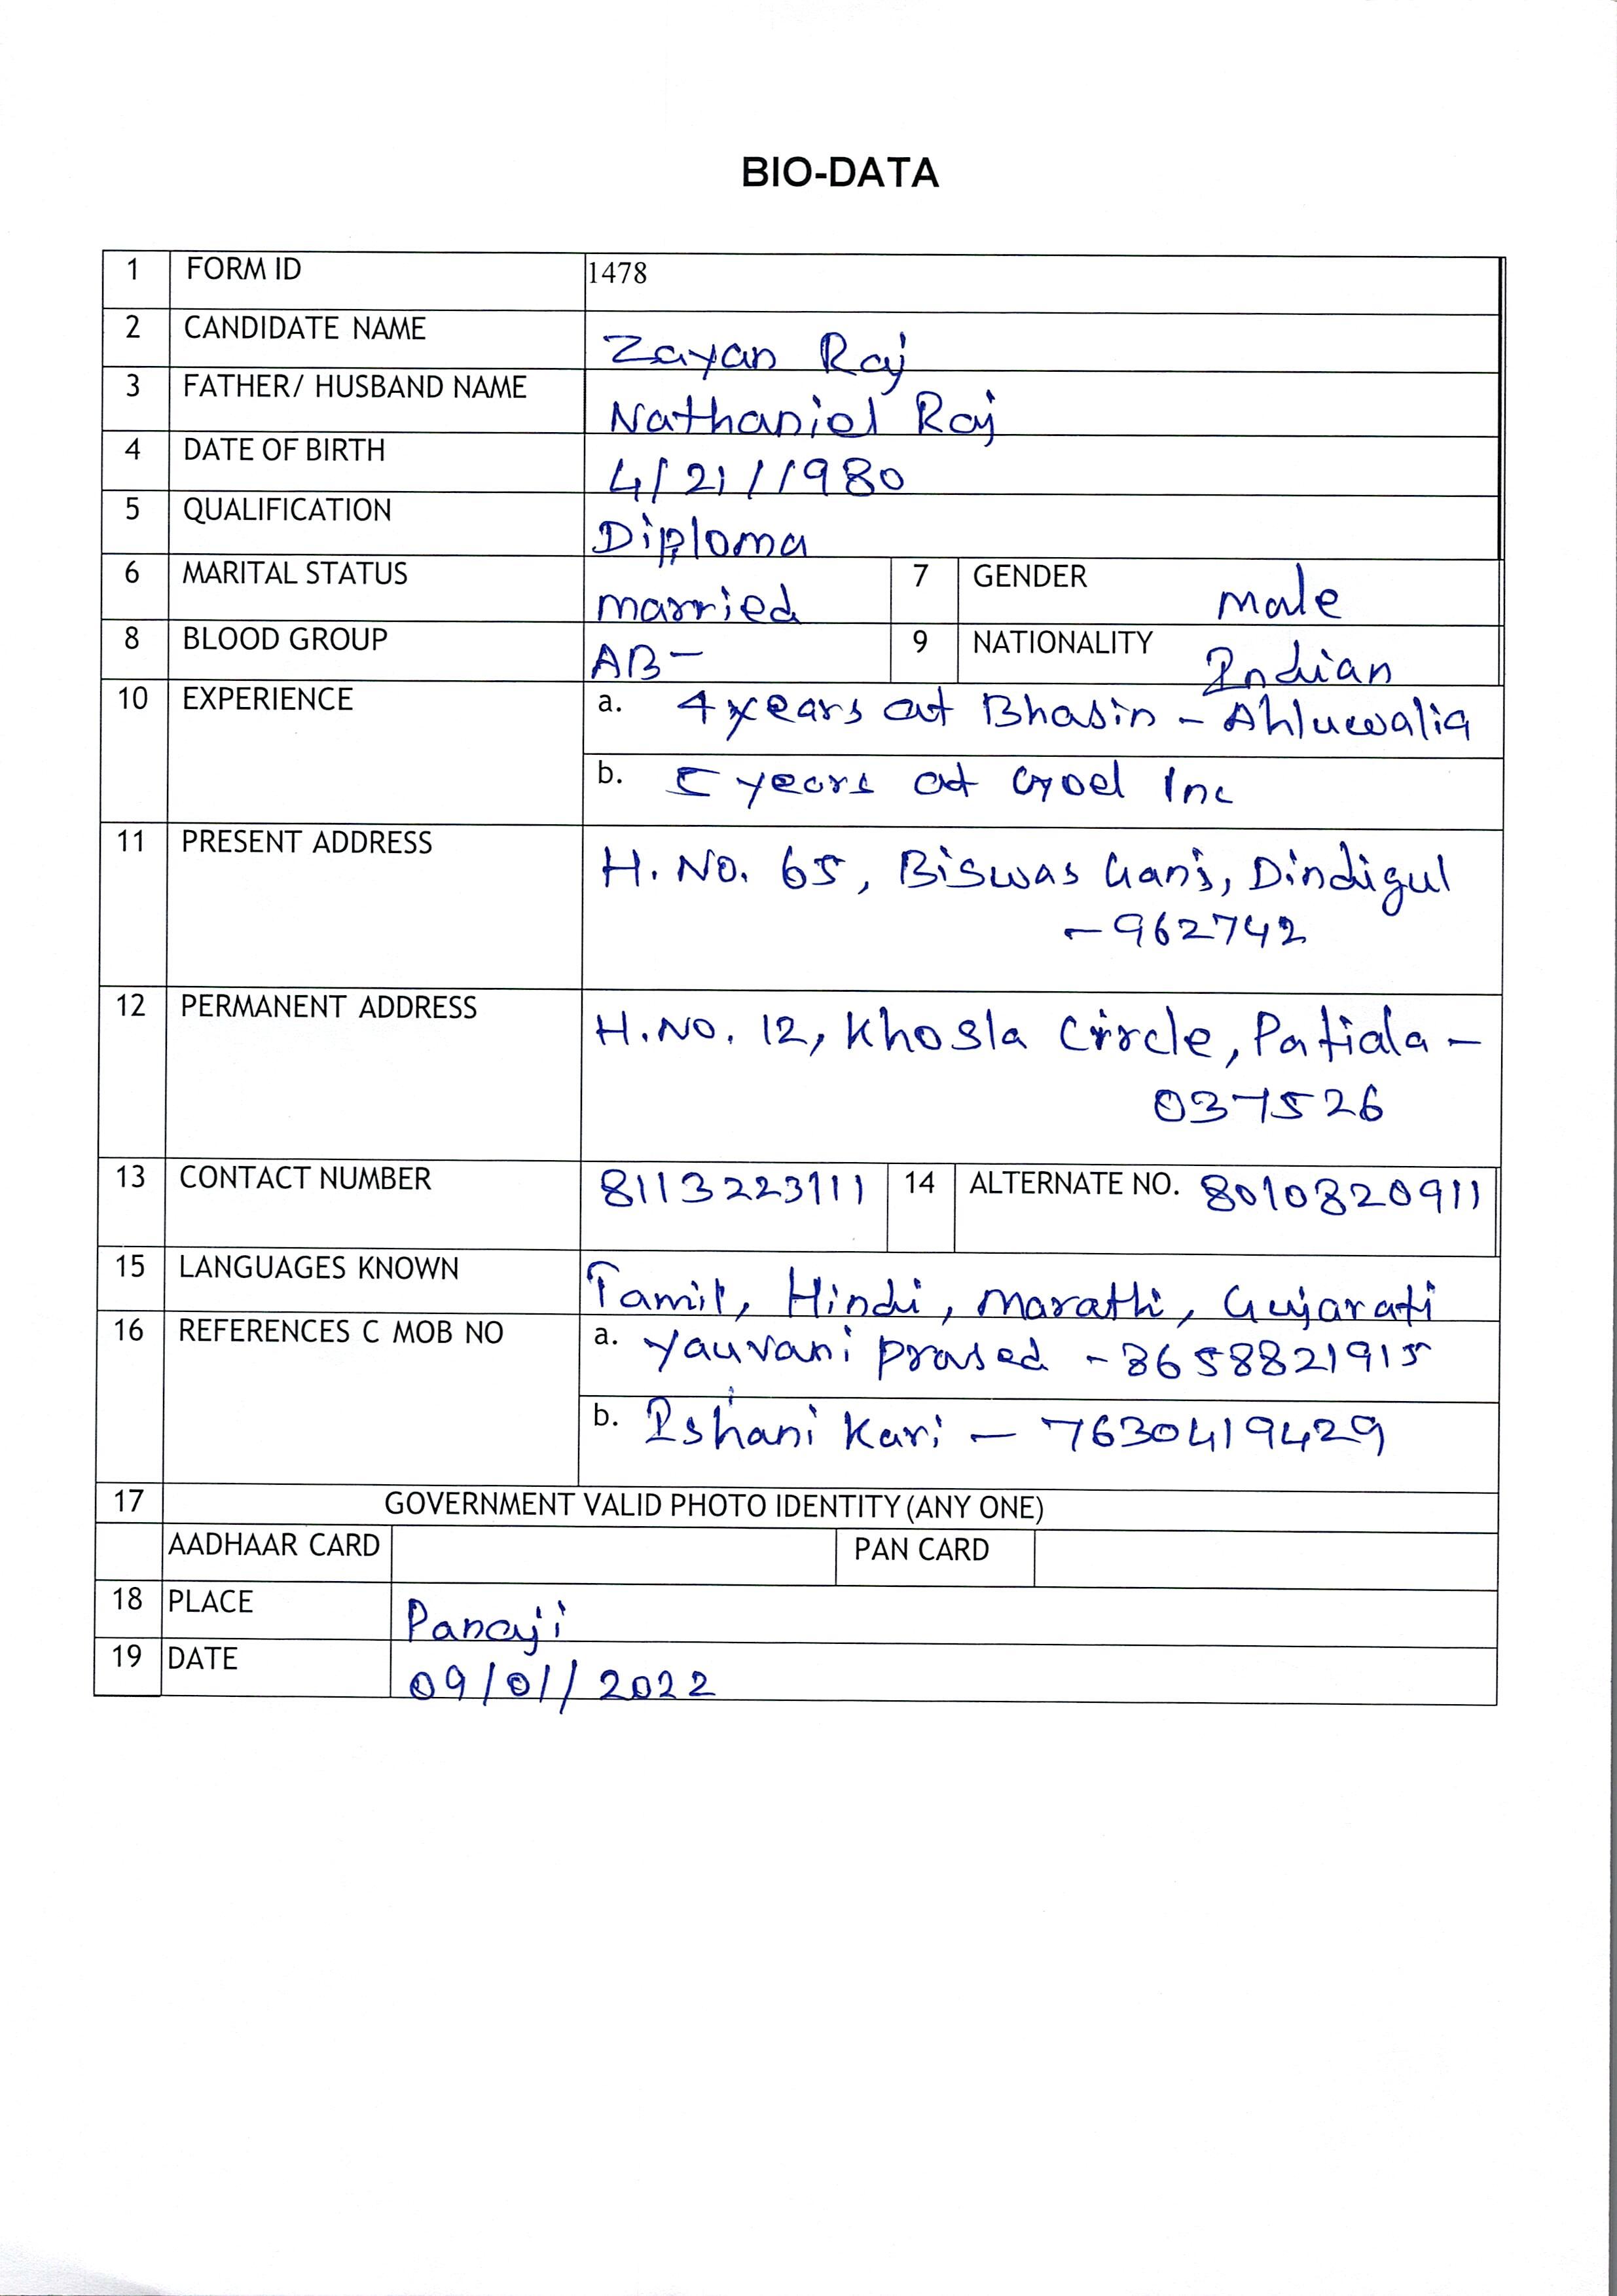 BIO-DATA
1 FORM ID 1478
2 CANDIDATE NAME Zayan Raj
3 FATHER/ HUSBAND NAME Nathaniel Raj
4 DATE OF BIRTH 4/21/1980
5 QUALIFICATION Diploma
6 MARITAL STATUS married 7 GENDER male
8 BLOOD GROUP AB- 9 NATIONALITY Indian
10 EXPERIENCE a. 4 years at Bhasin - Ahluwalia
b. 5 years at Goel Inc
11 PRESENT ADDRESS H. No. 65, Biswas Ganj, Dindigul
-962742
12 PERMANENT ADDRESS H.No. 12, Khosla Circle, Patiala -
037526
13 CONTACT NUMBER 8113223111 14 ALTERNATE NO. 8010820911
15 LANGUAGES KNOWN Tamil, Hindi, Marathi, Gujarati
16 REFERENCES C MOB NO a. Yauvani Prasad - 8658821915
b. Ishani Kari - 7630419429
17 GOVERNMENT VALID PHOTO IDENTITY (ANY ONE)
AADHAAR CARD PAN CARD
18 PLACE Panaji
19 DATE 09/01/2022